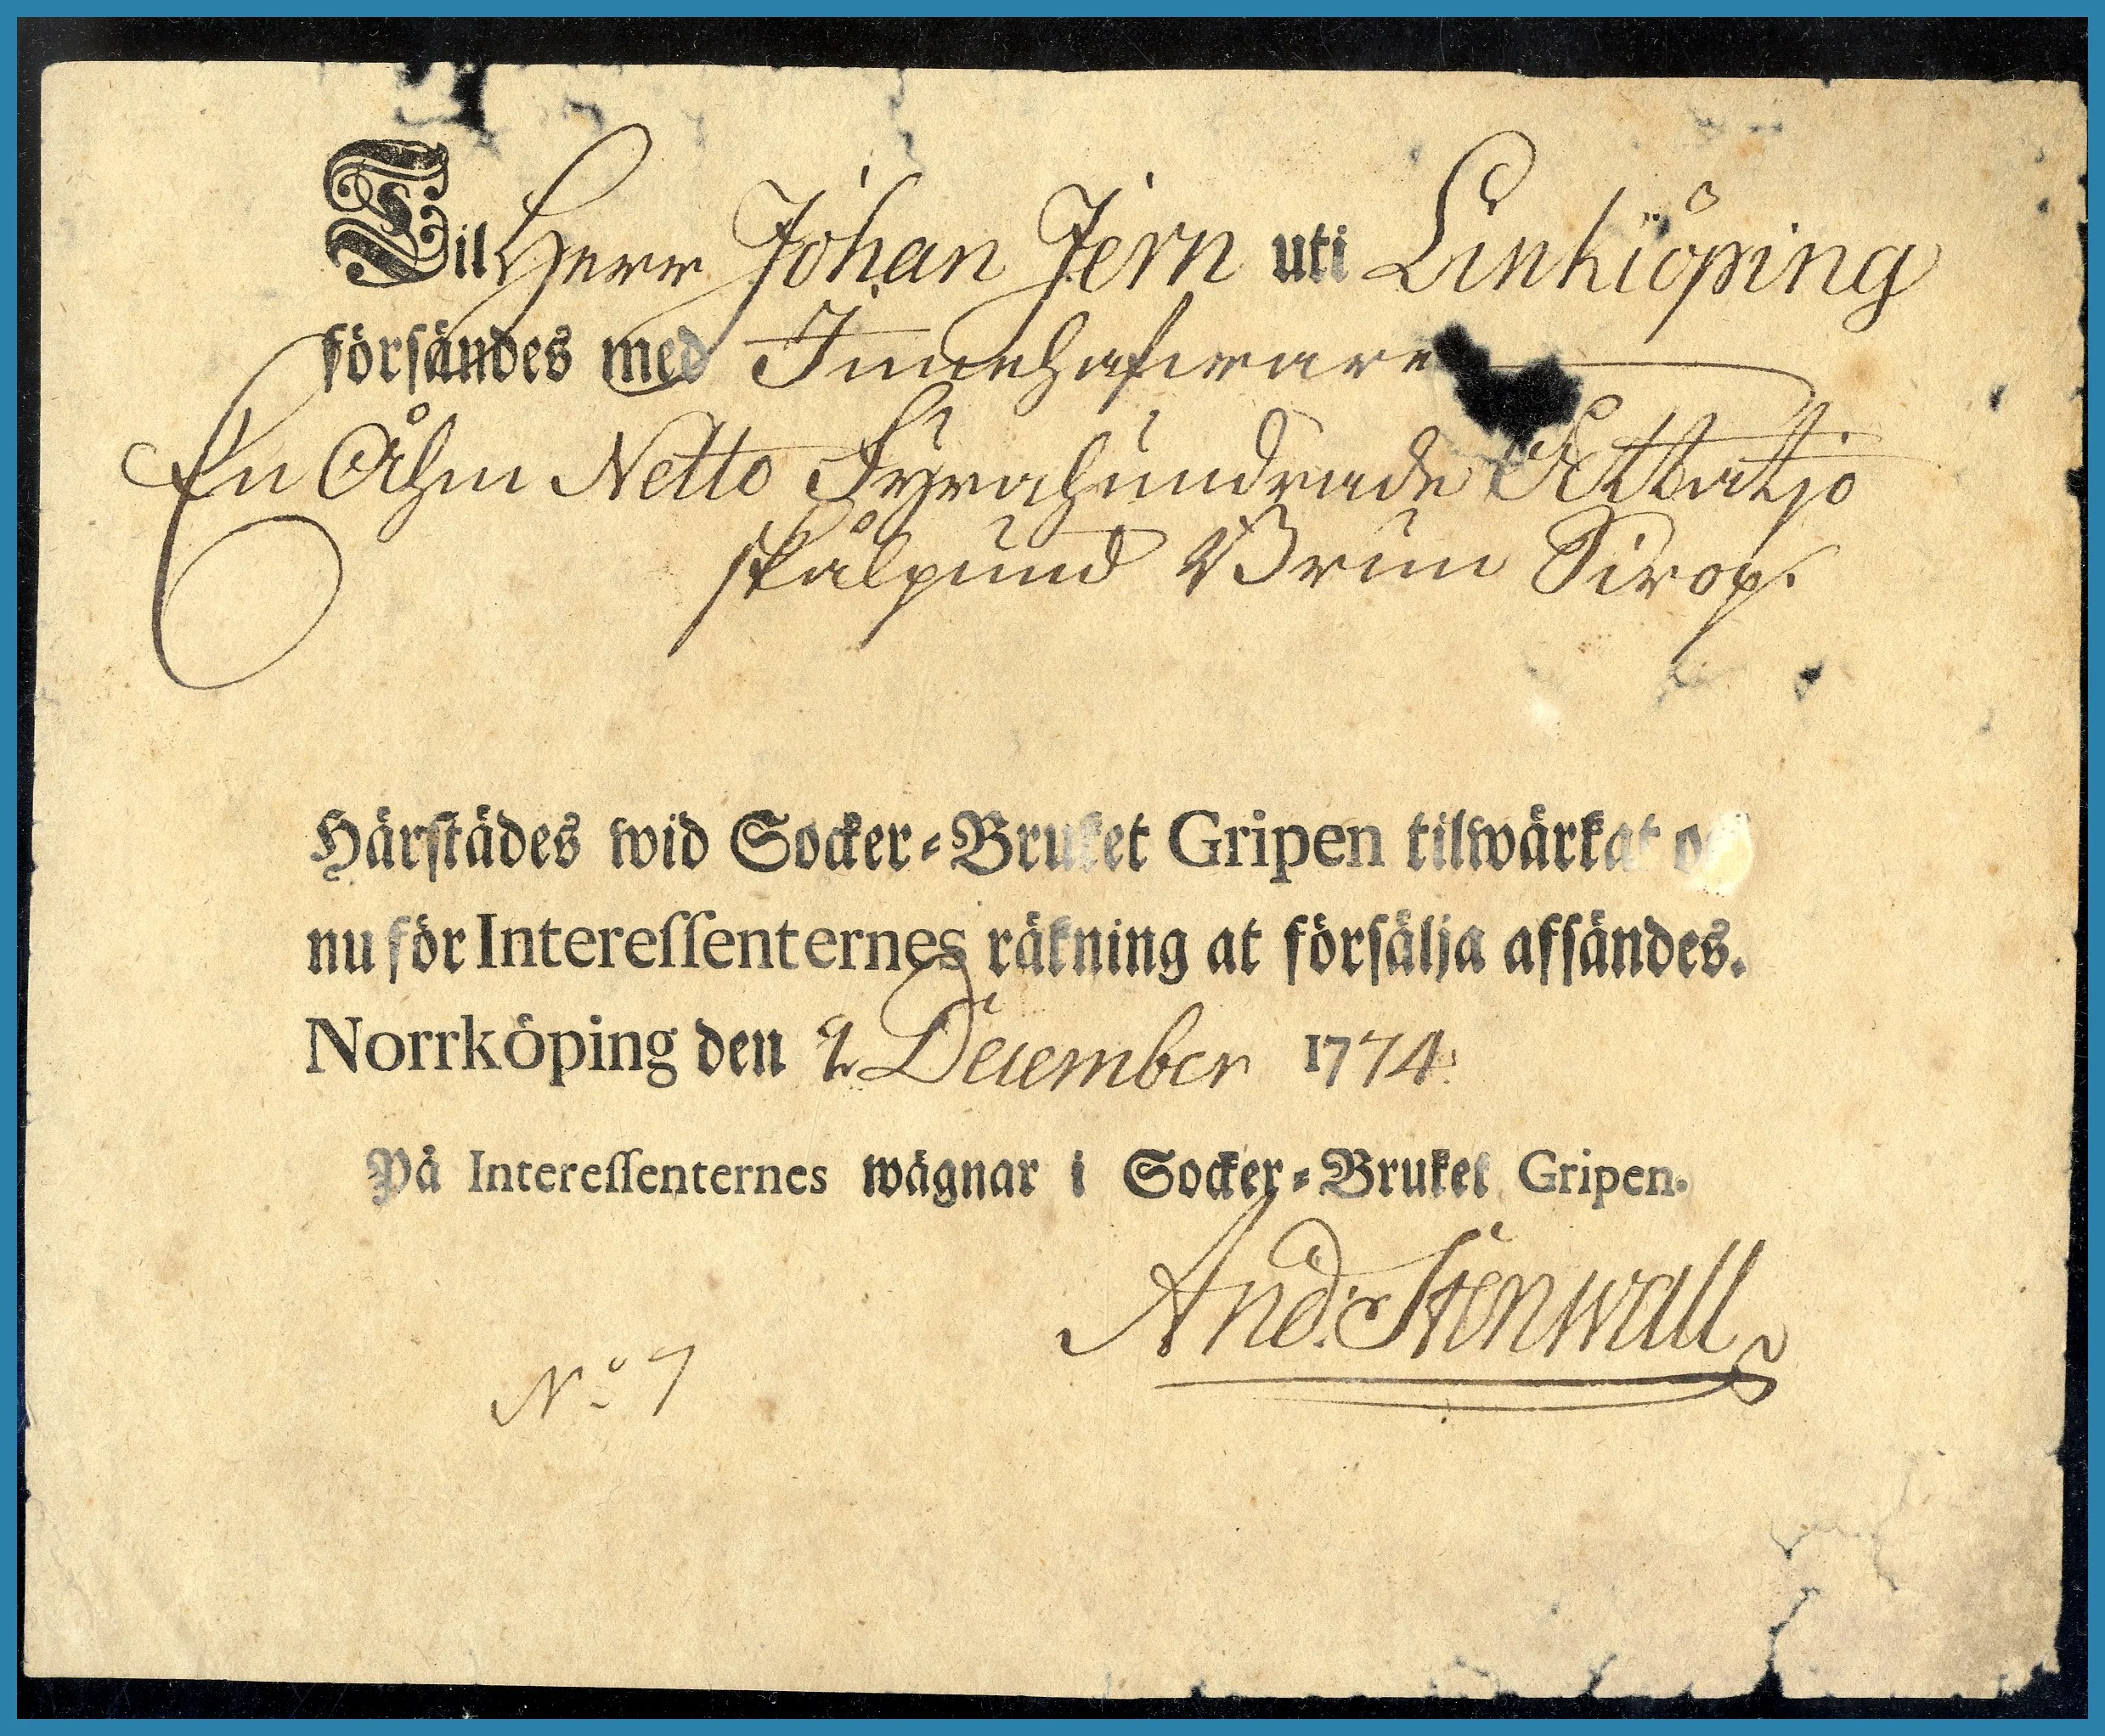 Til Herr Johan Jern uti Linkiöping
försändes med Innehafware
En Åhm Netto Fyrahundrade Ottatijo
skålpund Brun Sirop.
Härstädes wid Socker-Bruket Gripen tilwärkat
nu för Interessenternes räkning at försälja afsändes.
Norrköping den 2 December 1774.
På Interessenternes wägnar i Socker-Bruket Gripen.
And. Stenwall
No 7